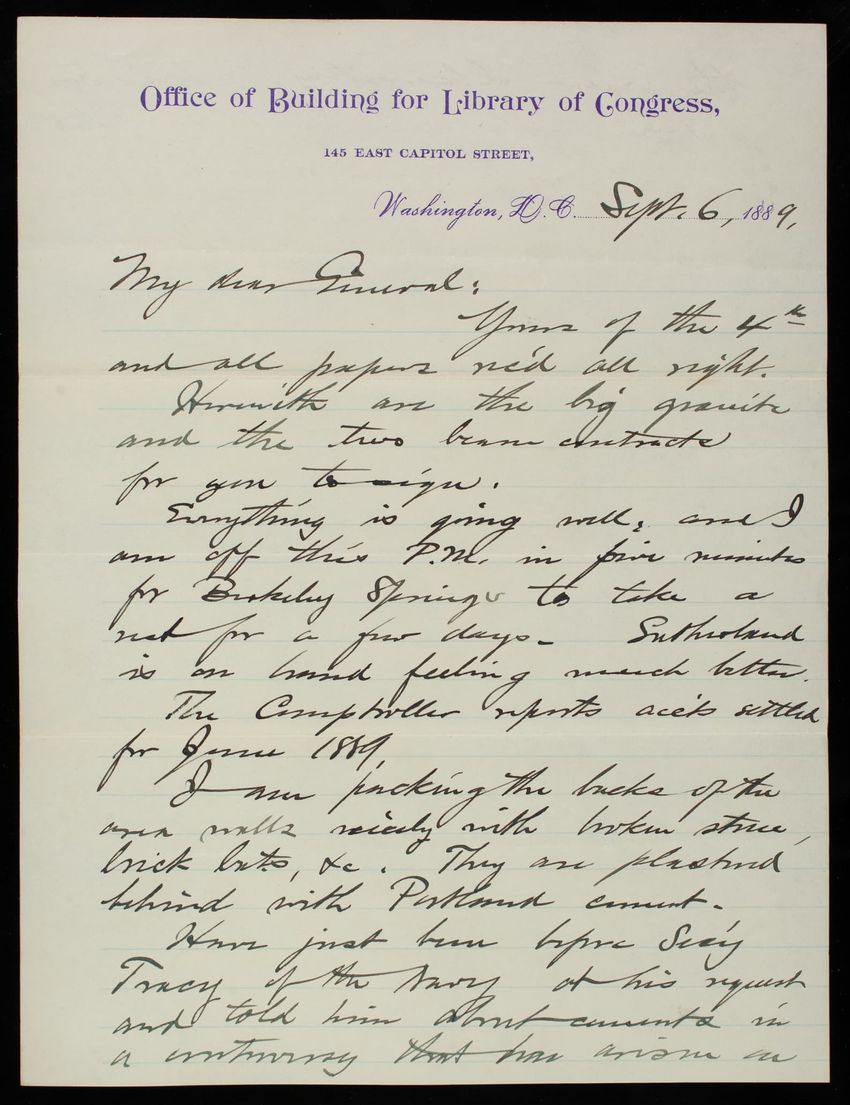 Office of Building for Library of Congress,
145 EAST CAPITOL STREET,
Washington, D.C. Sept. 6, 1889,
My dear General:
Yours of the 4th
and all papers rec'd all right.
Herewith are the big granite
and the two beam contracts
for you to sign.
Everything is going well, and I
am off this P.M. in five minutes
for Berkeley Springs to take a
rest for a few days - Sutherland
is on hand feeling much better.
The Comptroller reports acc'ts settled
for June 1889.
I am packing the backs of the
area walls nicely with broken stone,
brick bats, &c. They are plastered
behind with Portland cement.
Have just been before Sec'y
Tracy of the Navy at his request
and told him about cements in
a controversy that has arisen on